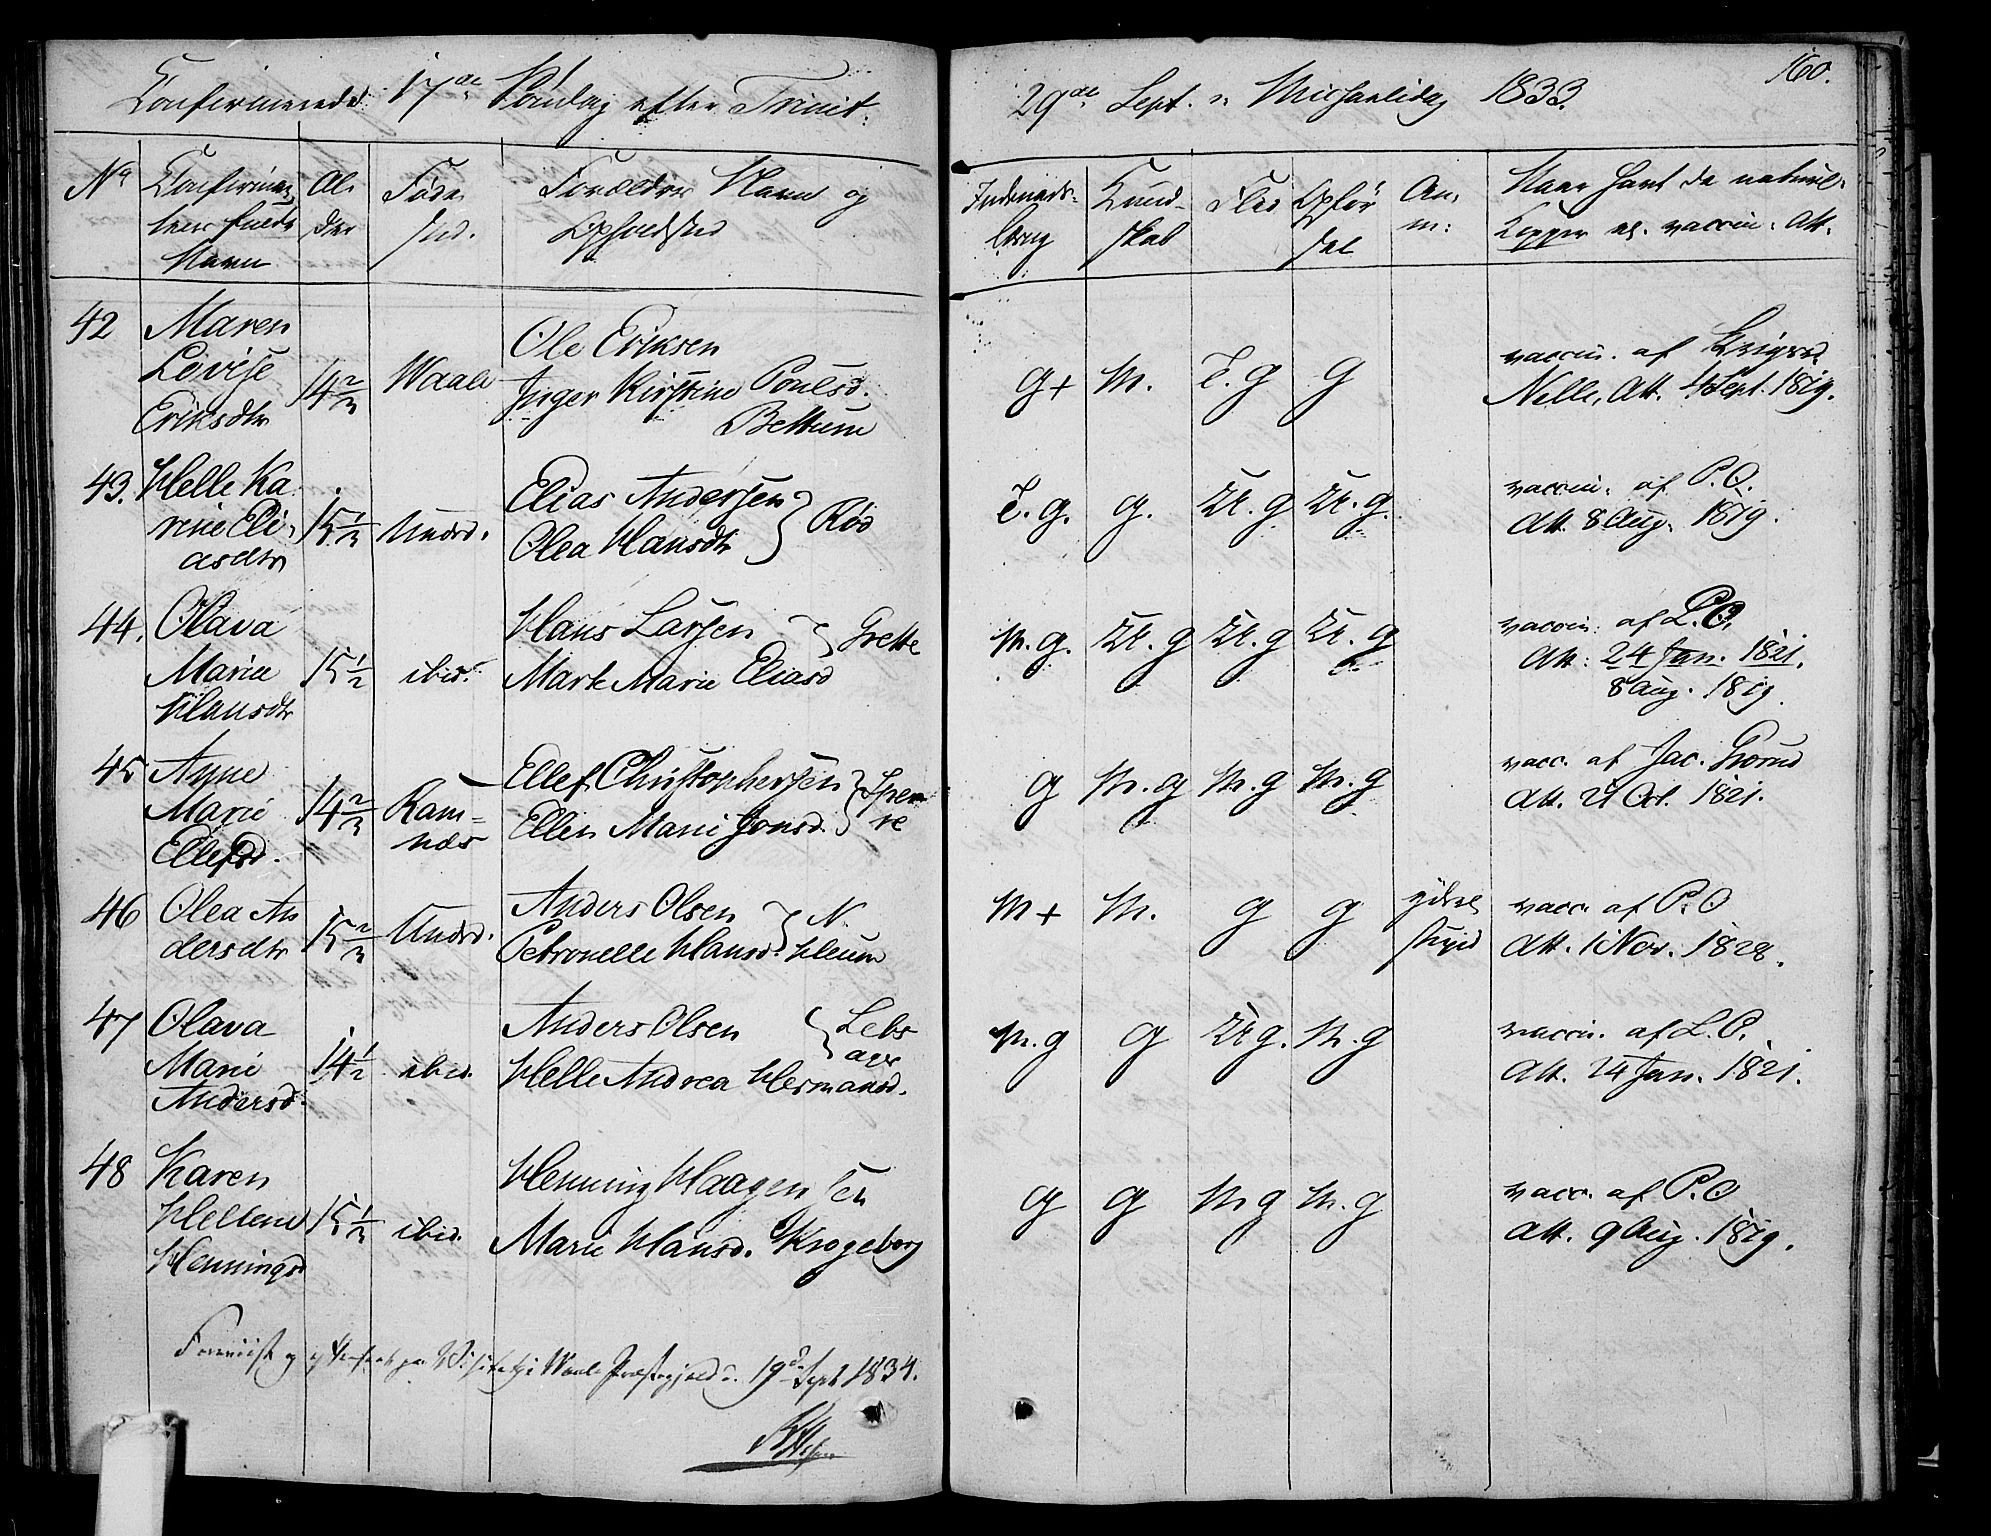 Confirmerede 17de Søndag efter Trinit.
29de Sept. Michaelidag 1833.
160.
No
Confirman
tens fulde
Navn
Al-
der
Føde
sted.
Forældres Navn og
Opholdsted
Indenads-
læsng
Kund-
skab
Flid
Opfør
sel
An,
m:
Naar havt de naturl:
Kopper el. vaccin: Att.
42
Maren
Lovise
Eriksdtr
14 2/3
Waale
Ole Eriksen
Inger Kirstine Poulsd.
Bettum
g+ m. T.g g
vaccin. af
Nelle, Att. 4 Sept. 1819.
43.
Helle Ka
rine Eli-
asdtr
15 1/3
Undrd.
Elias Andersen
Olea Hansdtr
Rød
T.g. g. U.g U.g.
vaccin. af P.O.
Att. 8 Aug. 1819.
44.
Olava
Marie
Hansdtr
15 1/2
ibid.
Hans Larsen
Marte Marie Eliasd
Grette
M.g. U.g U.g U.g
vaccin. af L.O.
Att: 24 Jan. 1821.
8 Aug. 1819.
45
Anne
Marie
Ellefsd.
14 2/3
Ram=
næs
Ellef Christophersen
Ellen Marie Jonsd.
g M.g M.g M.g
vacc. af Jac. Grorud
Att. 21 Oct. 1821.
46
Olea An
dersdtr
15 2/3
Undrd.
Anders Olsen
Petronelle Hansd.
N.
Heum
M+ M. g g
vacc. af P.O
Att. 1 Nov. 1828.
47
Olava
Marie
Andersd.
14 1/2
ibid.
Anders Olsen
Helle Andrea Hermansd.
M.g g U.g. M.g
vaccin. af L.O.
Att. 24 Jan. 1821.
48
Karen
Hellene
Henningsd
15 1/3
ibid.
Henning Haagensen
Marie Hansd. Krogeborg
g g M g M.g
vacc. af P.O
Att. 9 Aug. 1819.
Foreviist og paa Visitats i Waale Præstegjeld d. 19d Sept 1834.